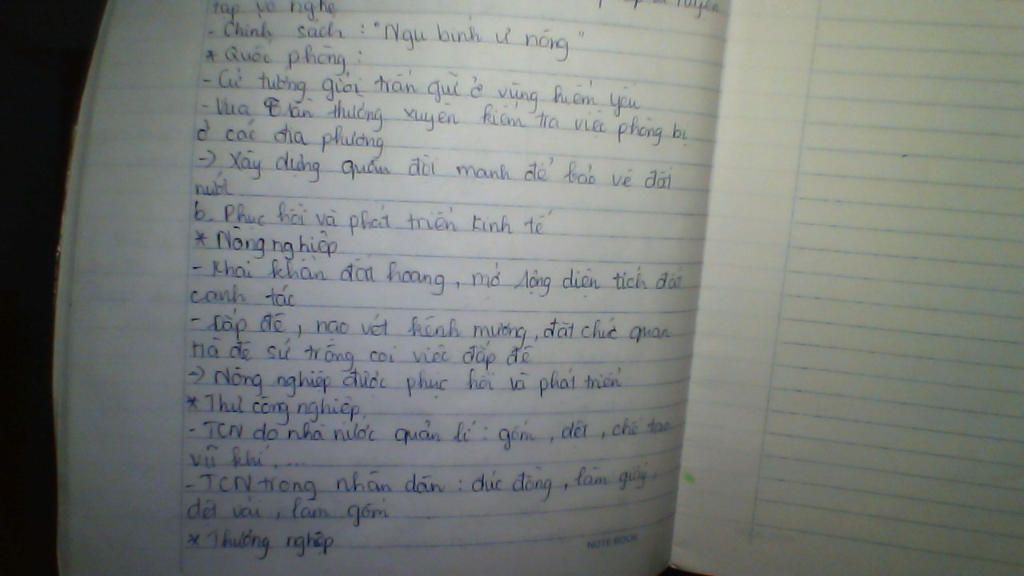 tập võ nghệ
- Chính sách : "Ngụ binh ư nông"
* Quốc phòng :
- Cử tướng giỏi trấn giữ ở vùng hiểm yếu
- Vua Trần thường xuyên kiểm tra việc phòng bị
ở các địa phương
-> Xây dựng quân đội mạnh để bảo vệ đất
nước
b. Phục hồi và phát triển kinh tế
* Nông nghiệp
- Khai khẩn đất hoang, mở rộng diện tích đất
canh tác
- Đắp đê, nạo vét kênh mương, đặt chức quan
Hà đê sứ trông coi việc đắp đê
-> Nông nghiệp được phục hồi và phát triển
* Thủ công nghiệp.
- TCN do nhà nước quản lí : gốm, dệt, chế tạo
vũ khí, ...
- TCN trong nhân dân : đúc đồng, làm giấy
dệt vải, làm gốm
* Thương nghiệp
NOTE BOOK